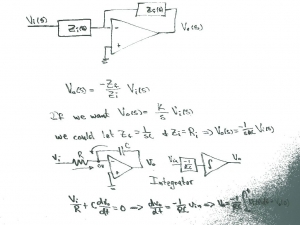 Vi(s) Zi(s) Zf(s) Vo(s)
- +
Vo(s) = -Zf/Zi Vi(s)
If we want Vo(s) = K/s Vi(s)
we could let Zf = 1/sC & Zi = Ri ⇒ Vo(s) = -1/sRC Vi(s)
Vi R C Vo Vin -1/RC ∫ Vo
Integrator
Vi/R + C dVo/dt = 0 ⇒ dVo/dt = -1/RC Vin ⇒ Vo = -1/RC ∫